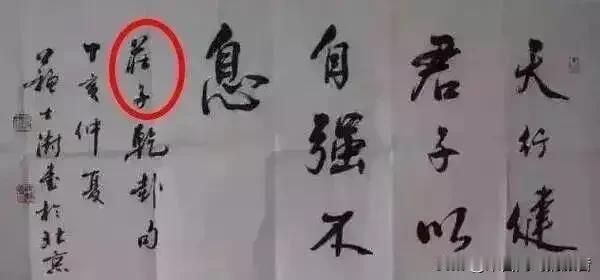 天行健
君子以
自强不
息
莊子乾卦句
丁亥仲夏
苏士澍書於北京